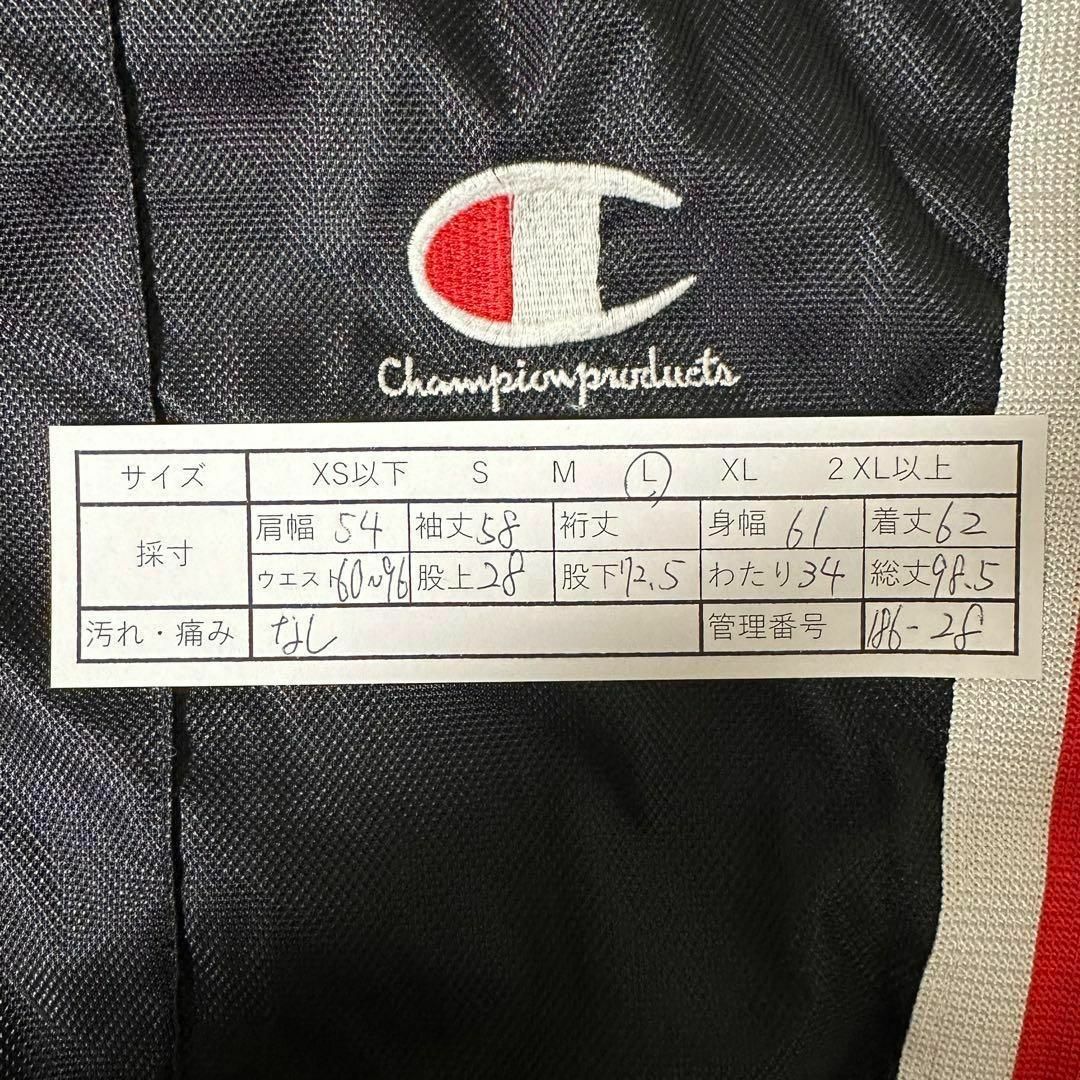 Championproducts
サイズ XS以下 S M L XL 2XL以上
採寸 肩幅 54 袖丈 58 裄丈 身幅 61 着丈 62
ウエスト 60~96 股上 28 股下 72.5 わたり 34 総丈 98.5
汚れ・痛み なし 管理番号 186-28